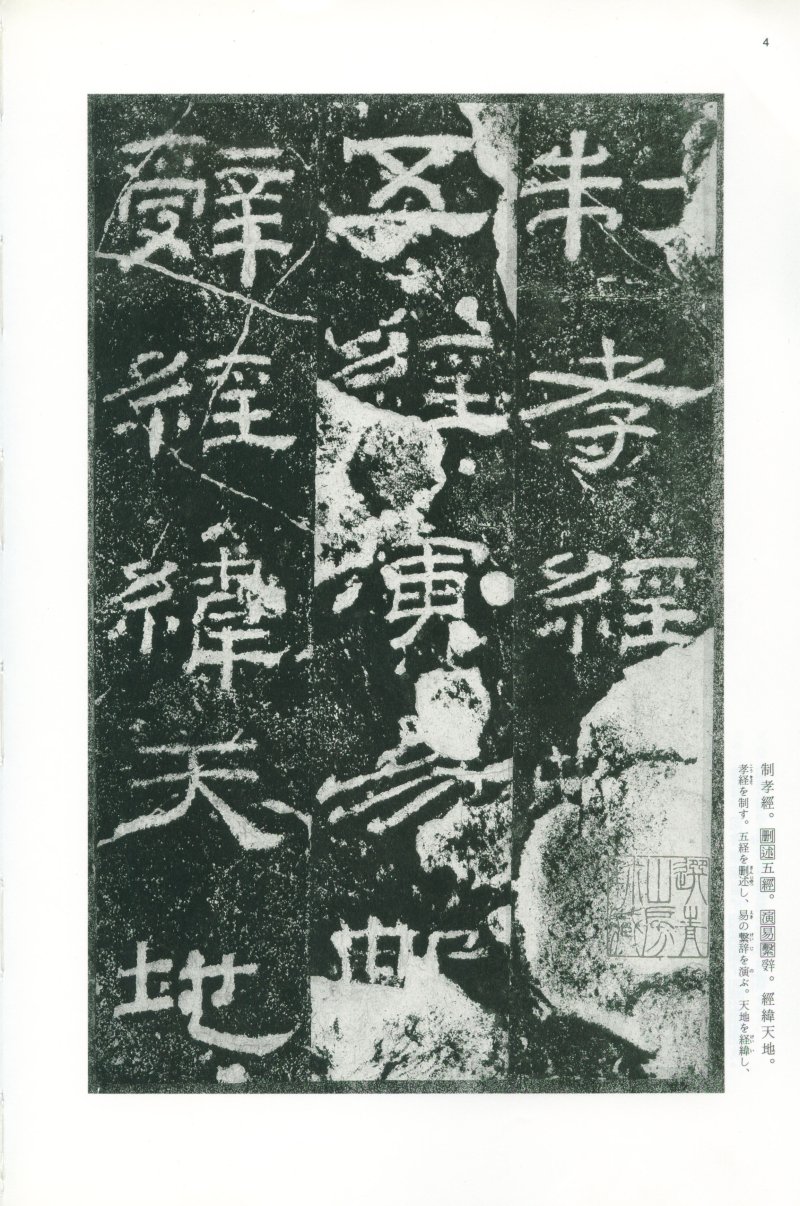 4
制孝經
五經演易
辤經緯天地
制孝經。刪述五經。演易繫辤。經緯天地。
孝経を制す。五経を刪述し、易の繫辞を演ぶ。天地を経緯し、